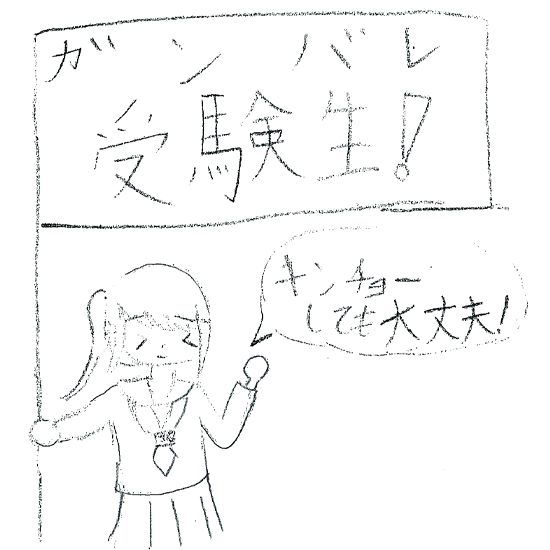 ガンバレ
受験生!
キンチョー
しても大丈夫!